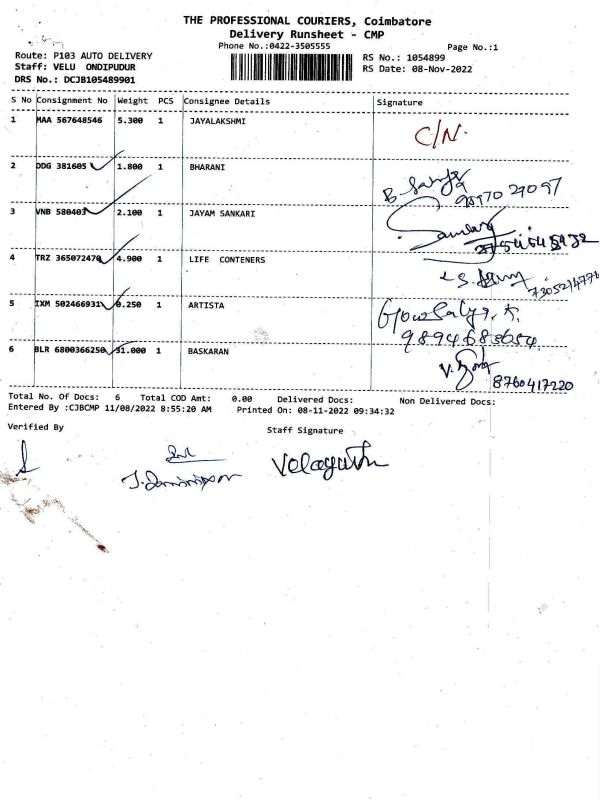 THE PROFESSIONAL COURIERS, Coimbatore
Delivery Runsheet - CMP
Phone No.:0422-3505555
Page No.:1
Route: P103 AUTO DELIVERY
RS No.: 1054899
Staff: VELU ONDIPUDUR
RS Date: 08-Nov-2022
DRS No.: DCJB105489901
S No Consignment No Weight PCS Consignee Details Signature
1 MAA 567648546 5.300 1 JAYALAKSHMI C/N.
2 DDG 381605 1.800 1 BHARANI
3 VNB 580403 2.100 1 JAYAM SANKARI
4 TRZ 365072470 4.900 1 LIFE CONTENERS
5 IXM 502466931 0.250 1 ARTISTA
9894683654
6 BLR 6800366250 31.000 1 BASKARAN
8760417220
Total No. Of Docs: 6 Total COD Amt: 0.00 Delivered Docs: Non Delivered Docs:
Entered By :CJBCMP 11/08/2022 8:55:20 AM Printed On: 08-11-2022 09:34:32
Verified By
Staff Signature
Velayutham